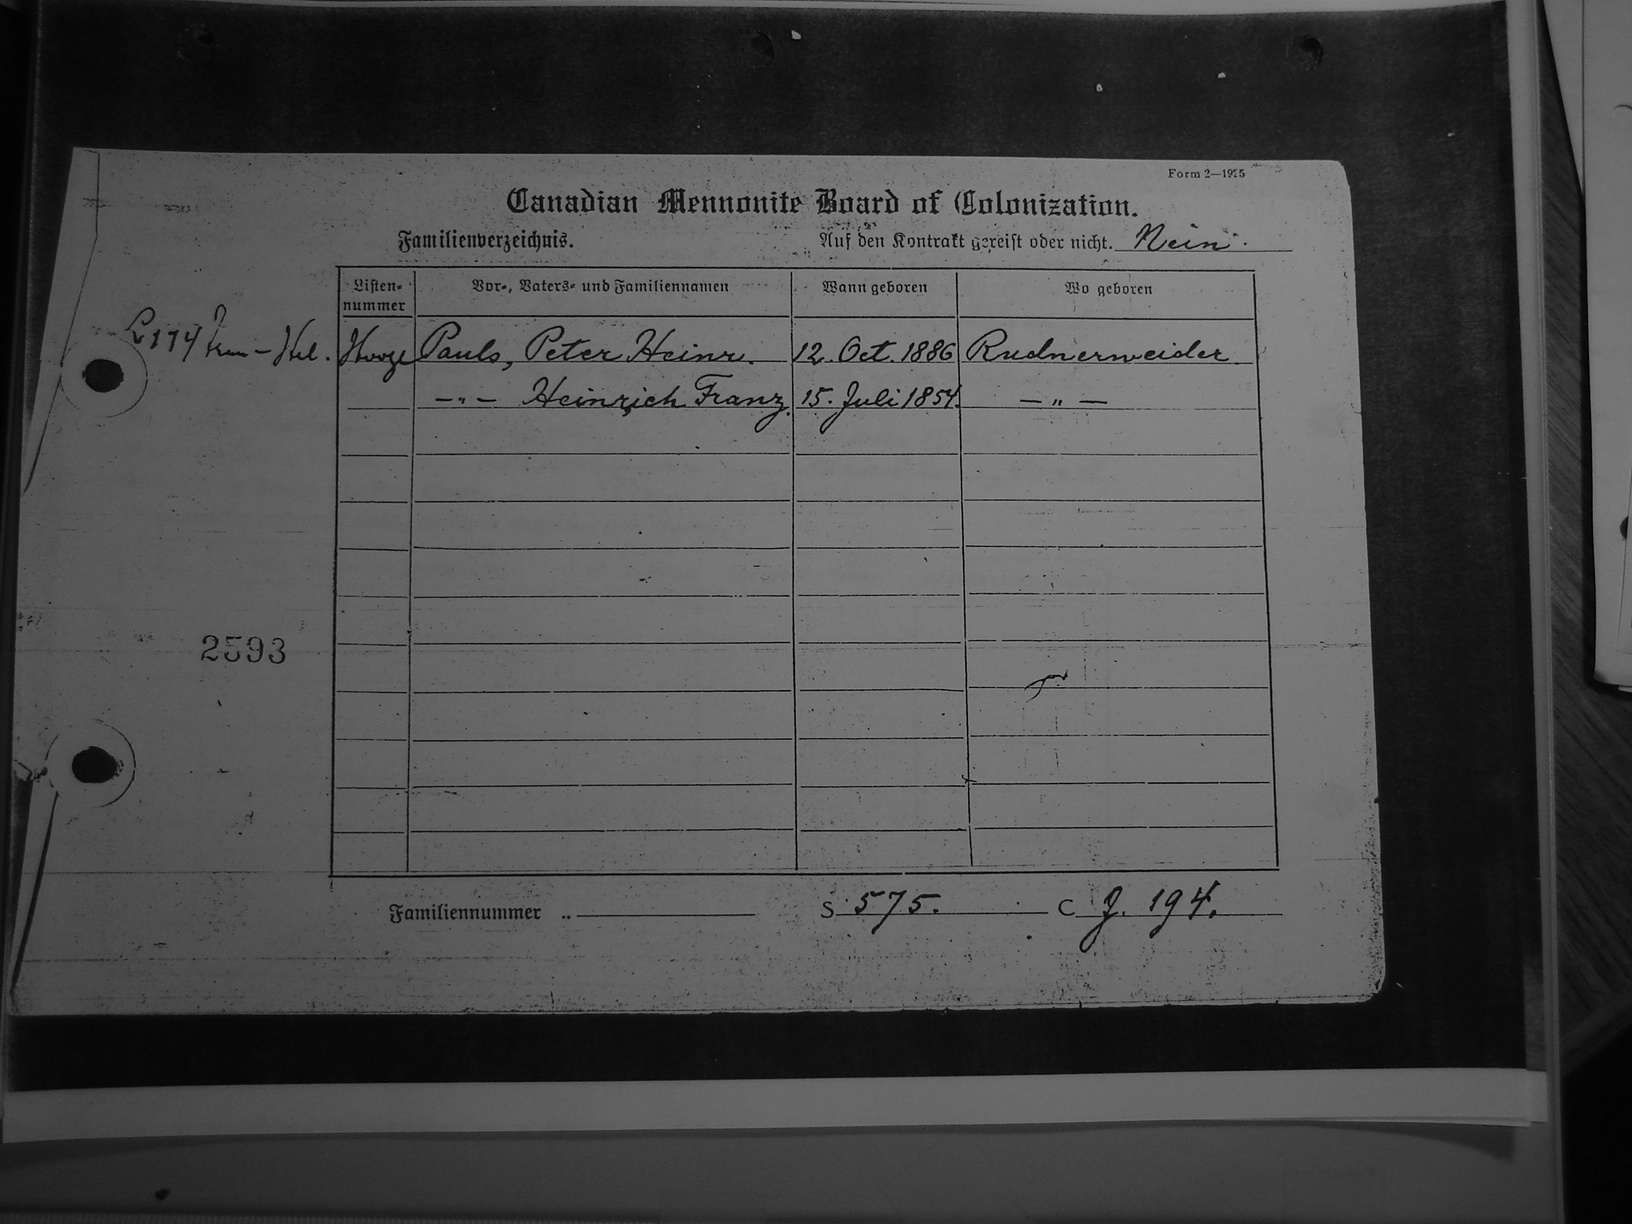 Form 2—1925
Canadian Mennonite Board of Colonization.
Familienverzeichnis. Auf den Kontrakt gereist oder nicht. Nein.
Listen-nummer Vor-, Vaters- und Familiennamen Wann geboren Wo geboren
Pauls, Peter Heinr. 12. Oct. 1886 Rudnerweider
–„– Heinrich Franz. 15. Juli 1854. –„–
2593
Familiennummer .. S 575. C J. 194.